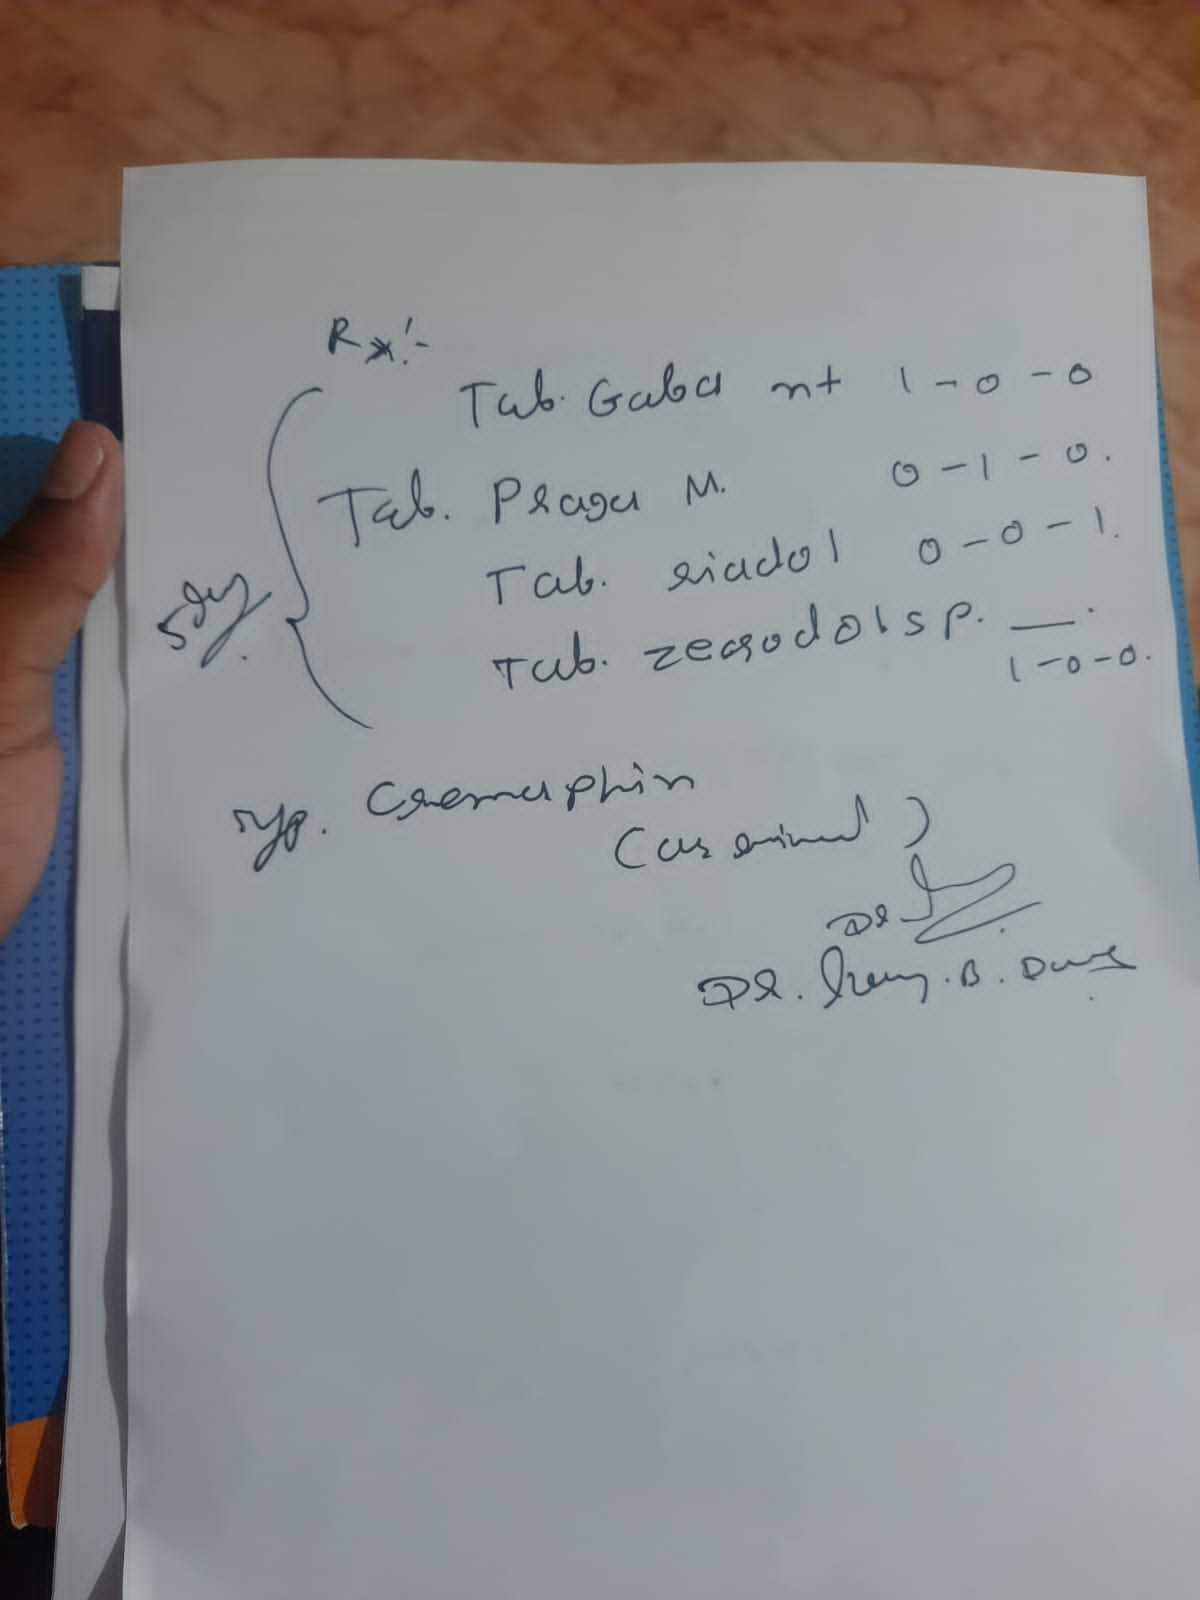 Rx:-
Tab. Gaba nt 1-0-0
Tab. Prega M. 0-1-0.
Tab. 0-0-1.
Tab. zerodol sp. 1-0-0.
5 day
Syp. Cremaphin
(as
Dr
Dr. B.